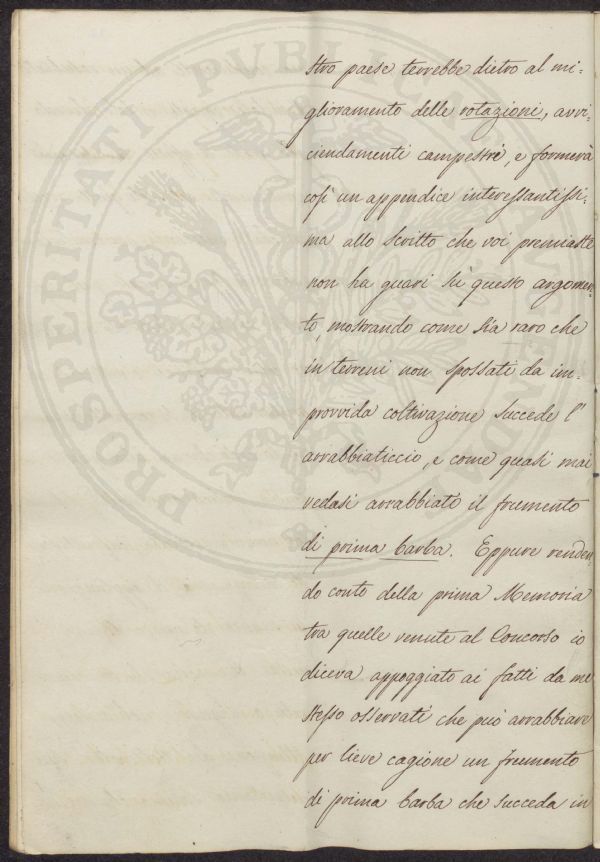 stro paese terrebbe dietro al mi-
glioramento delle rotazioni, avvi-
cendamenti campestri, e formerà
così un appendice interessantissi-
ma allo scritto che voi premiaste
non ha guari su questo argomen-
to, mostrando come sia raro che
in terreni non spossati da im-
provvida coltivazione succede l'
arrabbiaticcio, e come quasi mai
vedasi arrabbiato il frumento
di prima barba. Eppure renden-
do conto della prima Memoria
tra quelle venute al Concorso io
diceva appoggiato ai fatti da me
stesso osservati che può arrabbiare
per lieve cagione un frumento
di prima barba che succeda in
PROSPERITATI PUBLICAE AUGENDAE